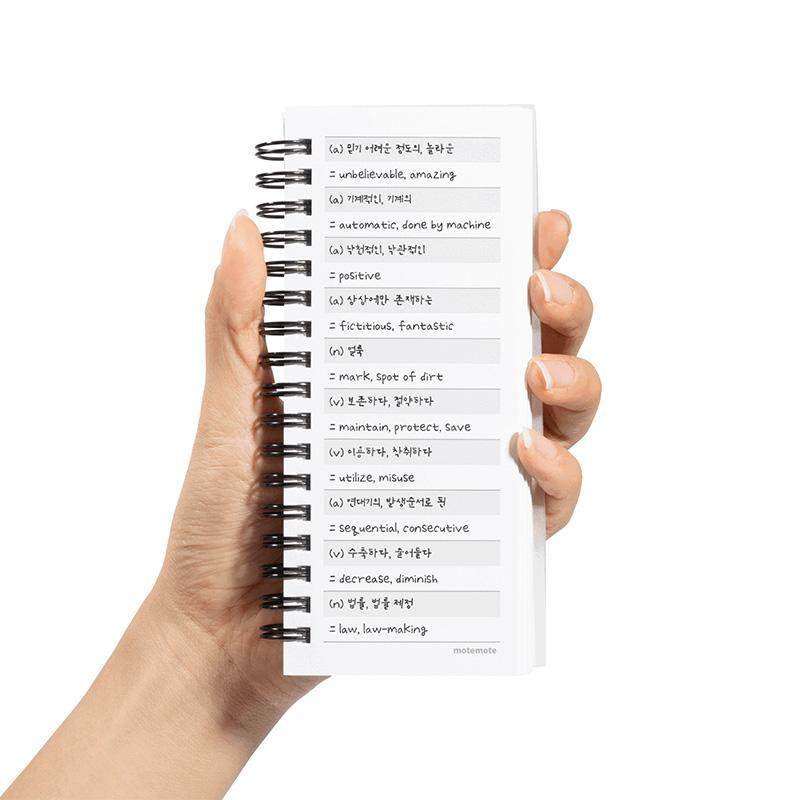 (a) 믿기 어려운 정도의, 놀라운
= unbelievable, amazing
(a) 기계적인, 기계의
= automatic, done by machine
(a) 낙천적인, 낙관적인
= positive
(a) 상상에만 존재하는
= fictitious, fantastic
(n) 얼룩
= mark, spot of dirt
(v) 보존하다, 절약하다
= maintain, protect, save
(v) 이용하다, 착취하다
= utilize, misuse
(a) 연대기의, 발생순서로 된
= sequential, consecutive
(v) 수축하다, 줄어들다
= decrease, diminish
(n) 법률, 법률 제정
= law, law-making
motemote